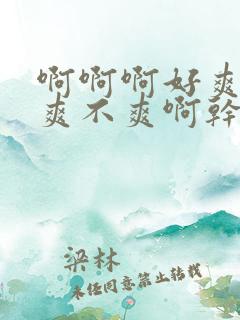 啊啊啊好爽
爽不爽啊幹
梁林
未经同意禁止转载